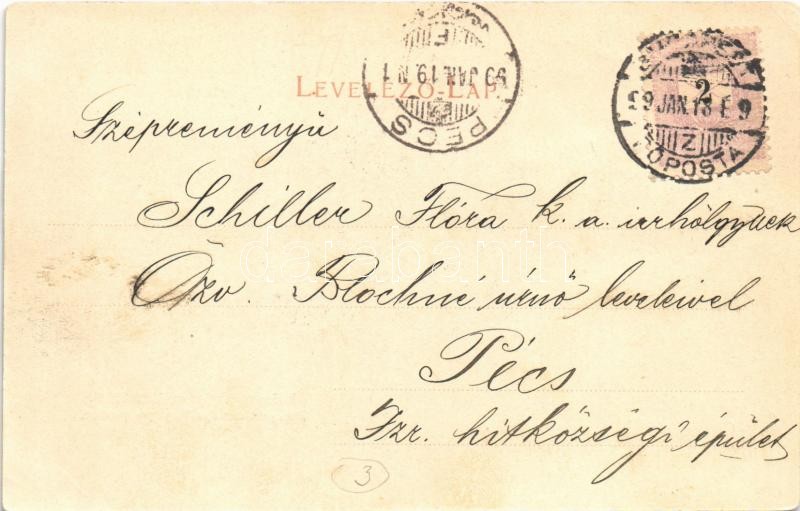 LEVELEZŐ-LAP.
PÉCS
99 JAN. 19. N 1
2
99 JAN. 18 E 9
Z
FŐPOSTA
Szépreményű
Schiller Flóra k. a. úrhölgynek
Özv. Blochné úrnő leveleivel
Pécs
Izr. hitközségi épület
3